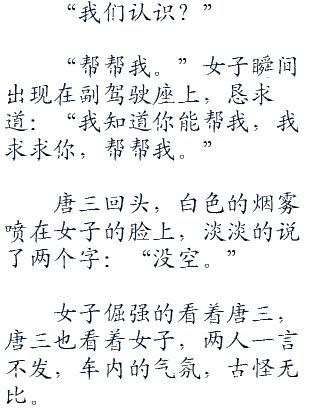 “我们认识？”
“帮帮我。”女子瞬间
出现在副驾驶座上，恳求
道：“我知道你能帮我，我
求求你，帮帮我。”
唐三回头，白色的烟雾
喷在女子的脸上，淡淡的说
了两个字：“没空。”
女子倔强的看着唐三，
唐三也看着女子，两人一言
不发，车内的气氛，古怪无
比。